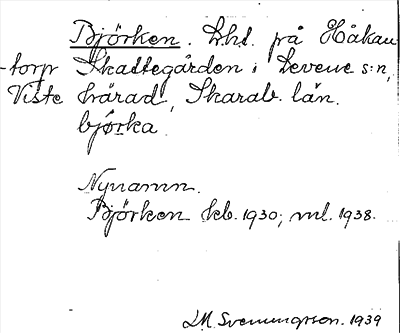 Björken. Lht. på Håkan-
torp Skattegården i Levene s:n,
Viste härad, Skarab. län.
bjørka.
Nynamn.
Björken kb. 1930; ml. 1938.
D.M. Svenningson. 1939